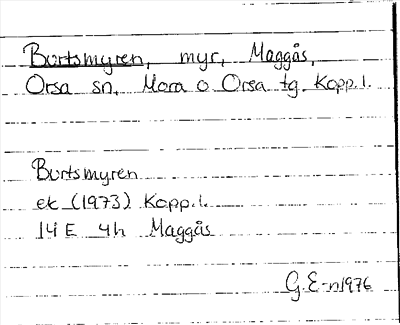 Burtsmyren, myr, Maggås,
Orsa sn, Mora o Orsa tg. Kopp.l.
Burtsmyren
ek (1973) Kopp.l.
14E 4h Maggås
G.E-n 1976